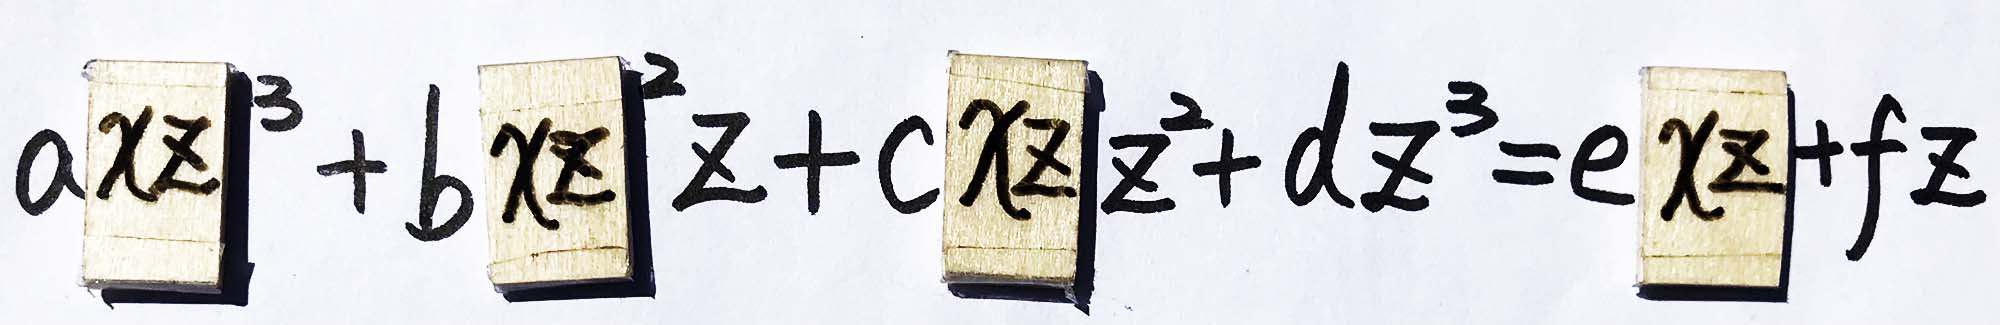 axz³+bxz²z+cxzz²+dz³=exz+fz